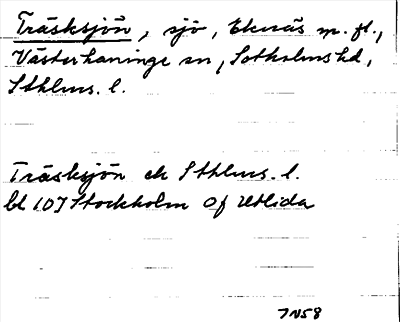 Träsksjön, sjö, Ekenäs m. fl.,
Västerhaninge sn, Sotholms hd,
Sthlms. l.
Träsksjön ek Sthlms. l.
bl 10J Stockholm Of Utlida
7N58